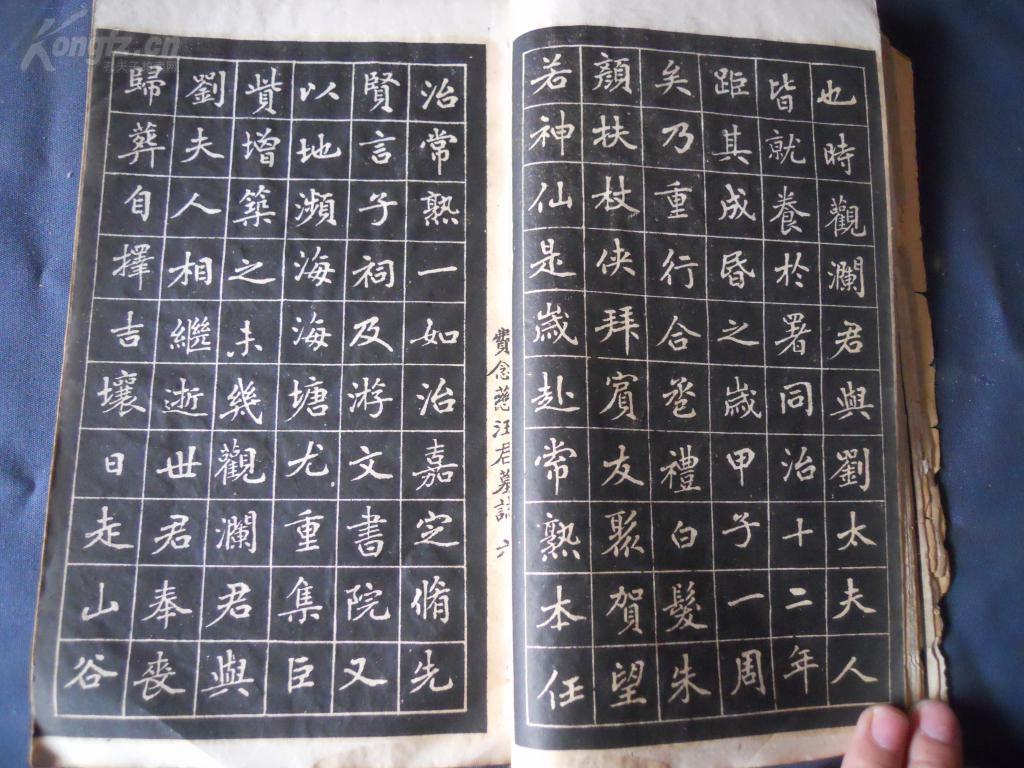 也時觀瀾君與劉太夫人
皆就養於署同治十二年
距其成昏之歲甲子一周
矣乃重行合巹禮白髮朱
顏扶杖俠拜賓友聚賀望
若神仙是歲赴常熟本任
費念慈汪君墓誌 六
治常熟一如治嘉定脩先
賢言子祠及游文書院又
以地瀕海海塘尤重集臣
貲增築之未幾觀瀾君與
劉夫人相繼逝世君奉喪
歸葬自擇吉壤日走山谷
Kongfz.cn